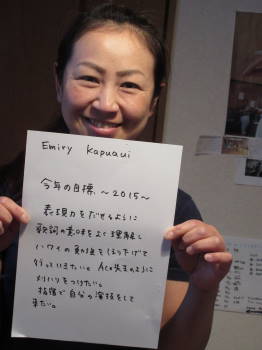 Emiry Kapuaui
今年の目標 〜2015〜
表現力をだせるように
歌詞の意味をよく理解し
ハワイの 点をほり下げて
行っていきたい。 先生のように
メリハリをつけたい。
抜館で自分の演技をして
来たい。